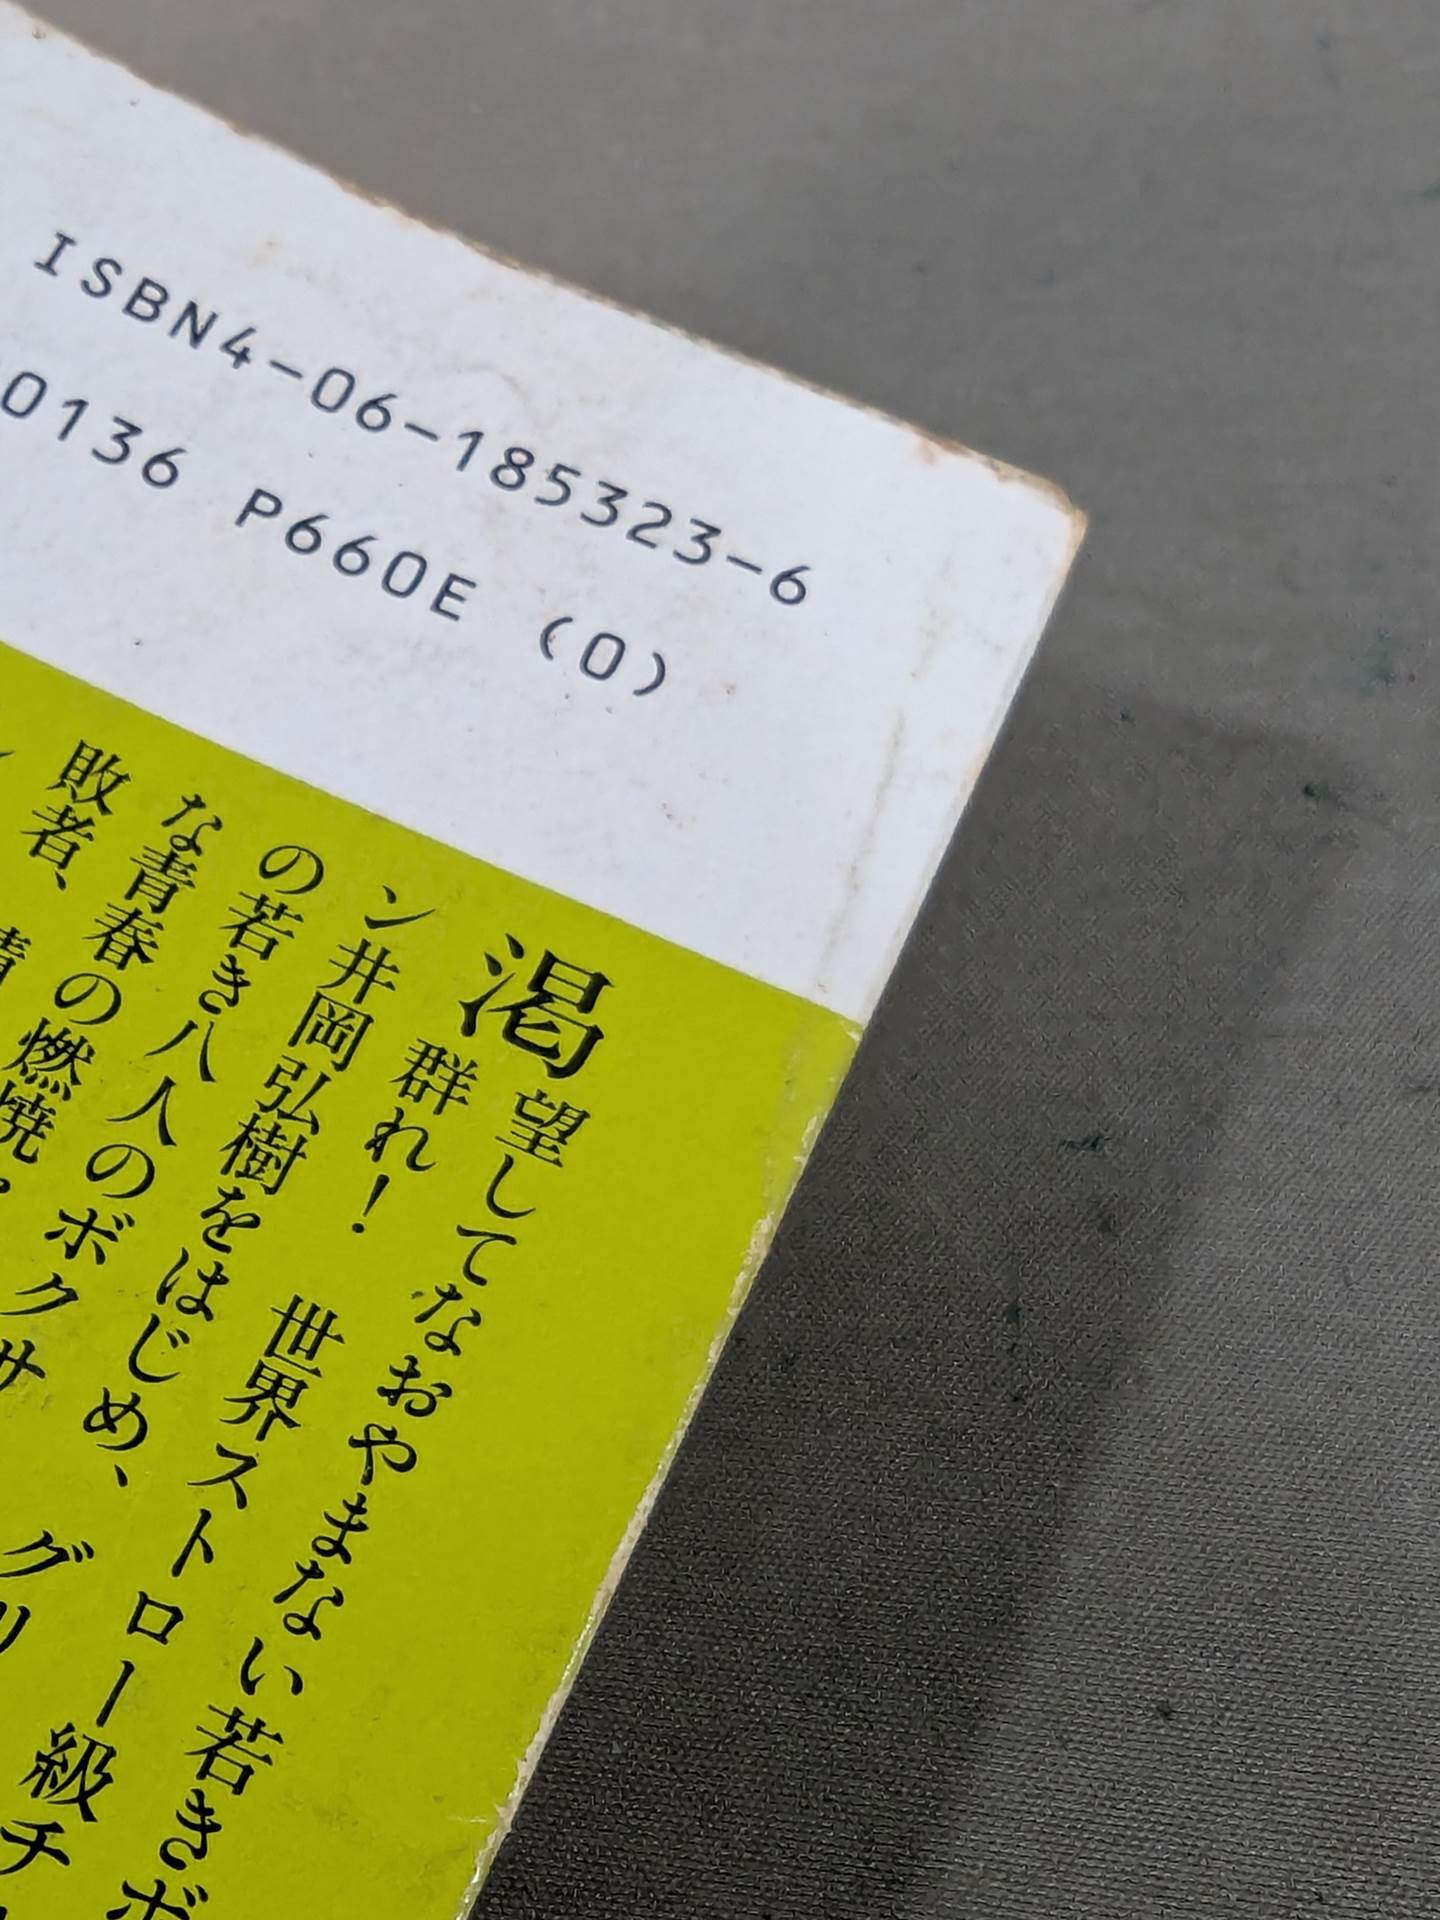 ISBN4-06-185323-6
0136 P660E (0)
渇望してなおやまない若きボ
群れ! 世界ストロー級チ
ン井岡弘樹をはじめ、グリ
の若き八人のボクサ
な青春の燃焼。
敗者、